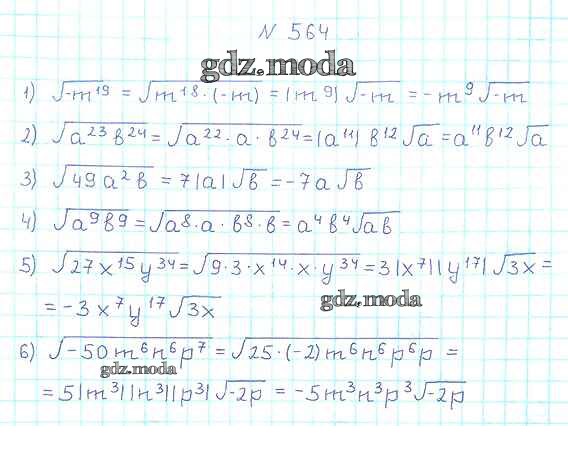 N 564
gdz.moda
1) √-m¹⁹ = √m¹⁸·(-m) = |m⁹| √-m = -m⁹ √-m
2) √a²³b²⁴ = √a²²·a·b²⁴ = |a¹¹| b¹² √a = a¹¹b¹² √a
3) √49a²b = 7|a| √b = -7a √b
4) √a⁹b⁹ = √a⁸·a·b⁸·b = a⁴b⁴√ab
5) √27x¹⁵y³⁴ = √9·3·x¹⁴·x·y³⁴ = 3|x⁷||y¹⁷| √3x =
gdz.moda
= -3x⁷y¹⁷ √3x
6) √-50m⁶n⁶p⁷ = √25·(-2)m⁶n⁶p⁶p =
gdz.moda
= 5|m³||n³||p³| √-2p = -5m³n³p³ √-2p